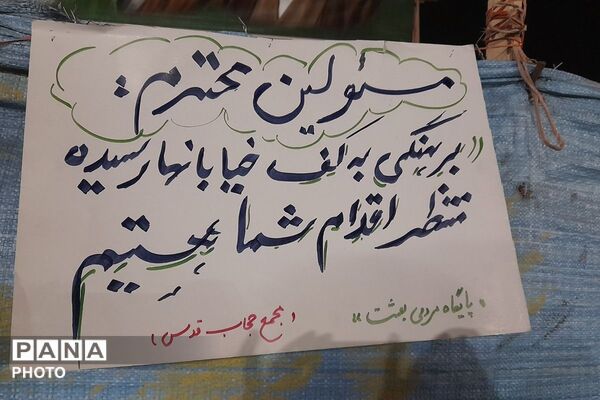 مسئولین محترم :
((برهنگی به کف خیابانها رسیده
منتظر اقدام شما هستیم
«پایگاه مردمی بعثت»
(مجمع حجاب قدس)
PANA
PHOTO